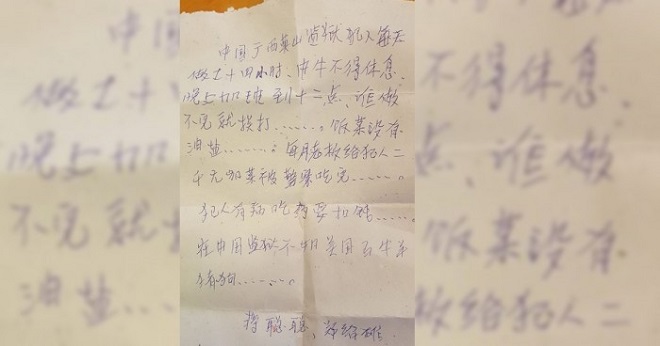 中国广西英山监狱犯人每天
做工十四小时、中午不得休息.
晚上加班到十二点、谁做
不完就挨打......。饭菜没有
油盐......。每月老板给犯人二
千元加菜被警察吃完......
犯人有病吃药要扣钱......
在中国监狱不如美国马牛羊
猪狗......。
聪聪、